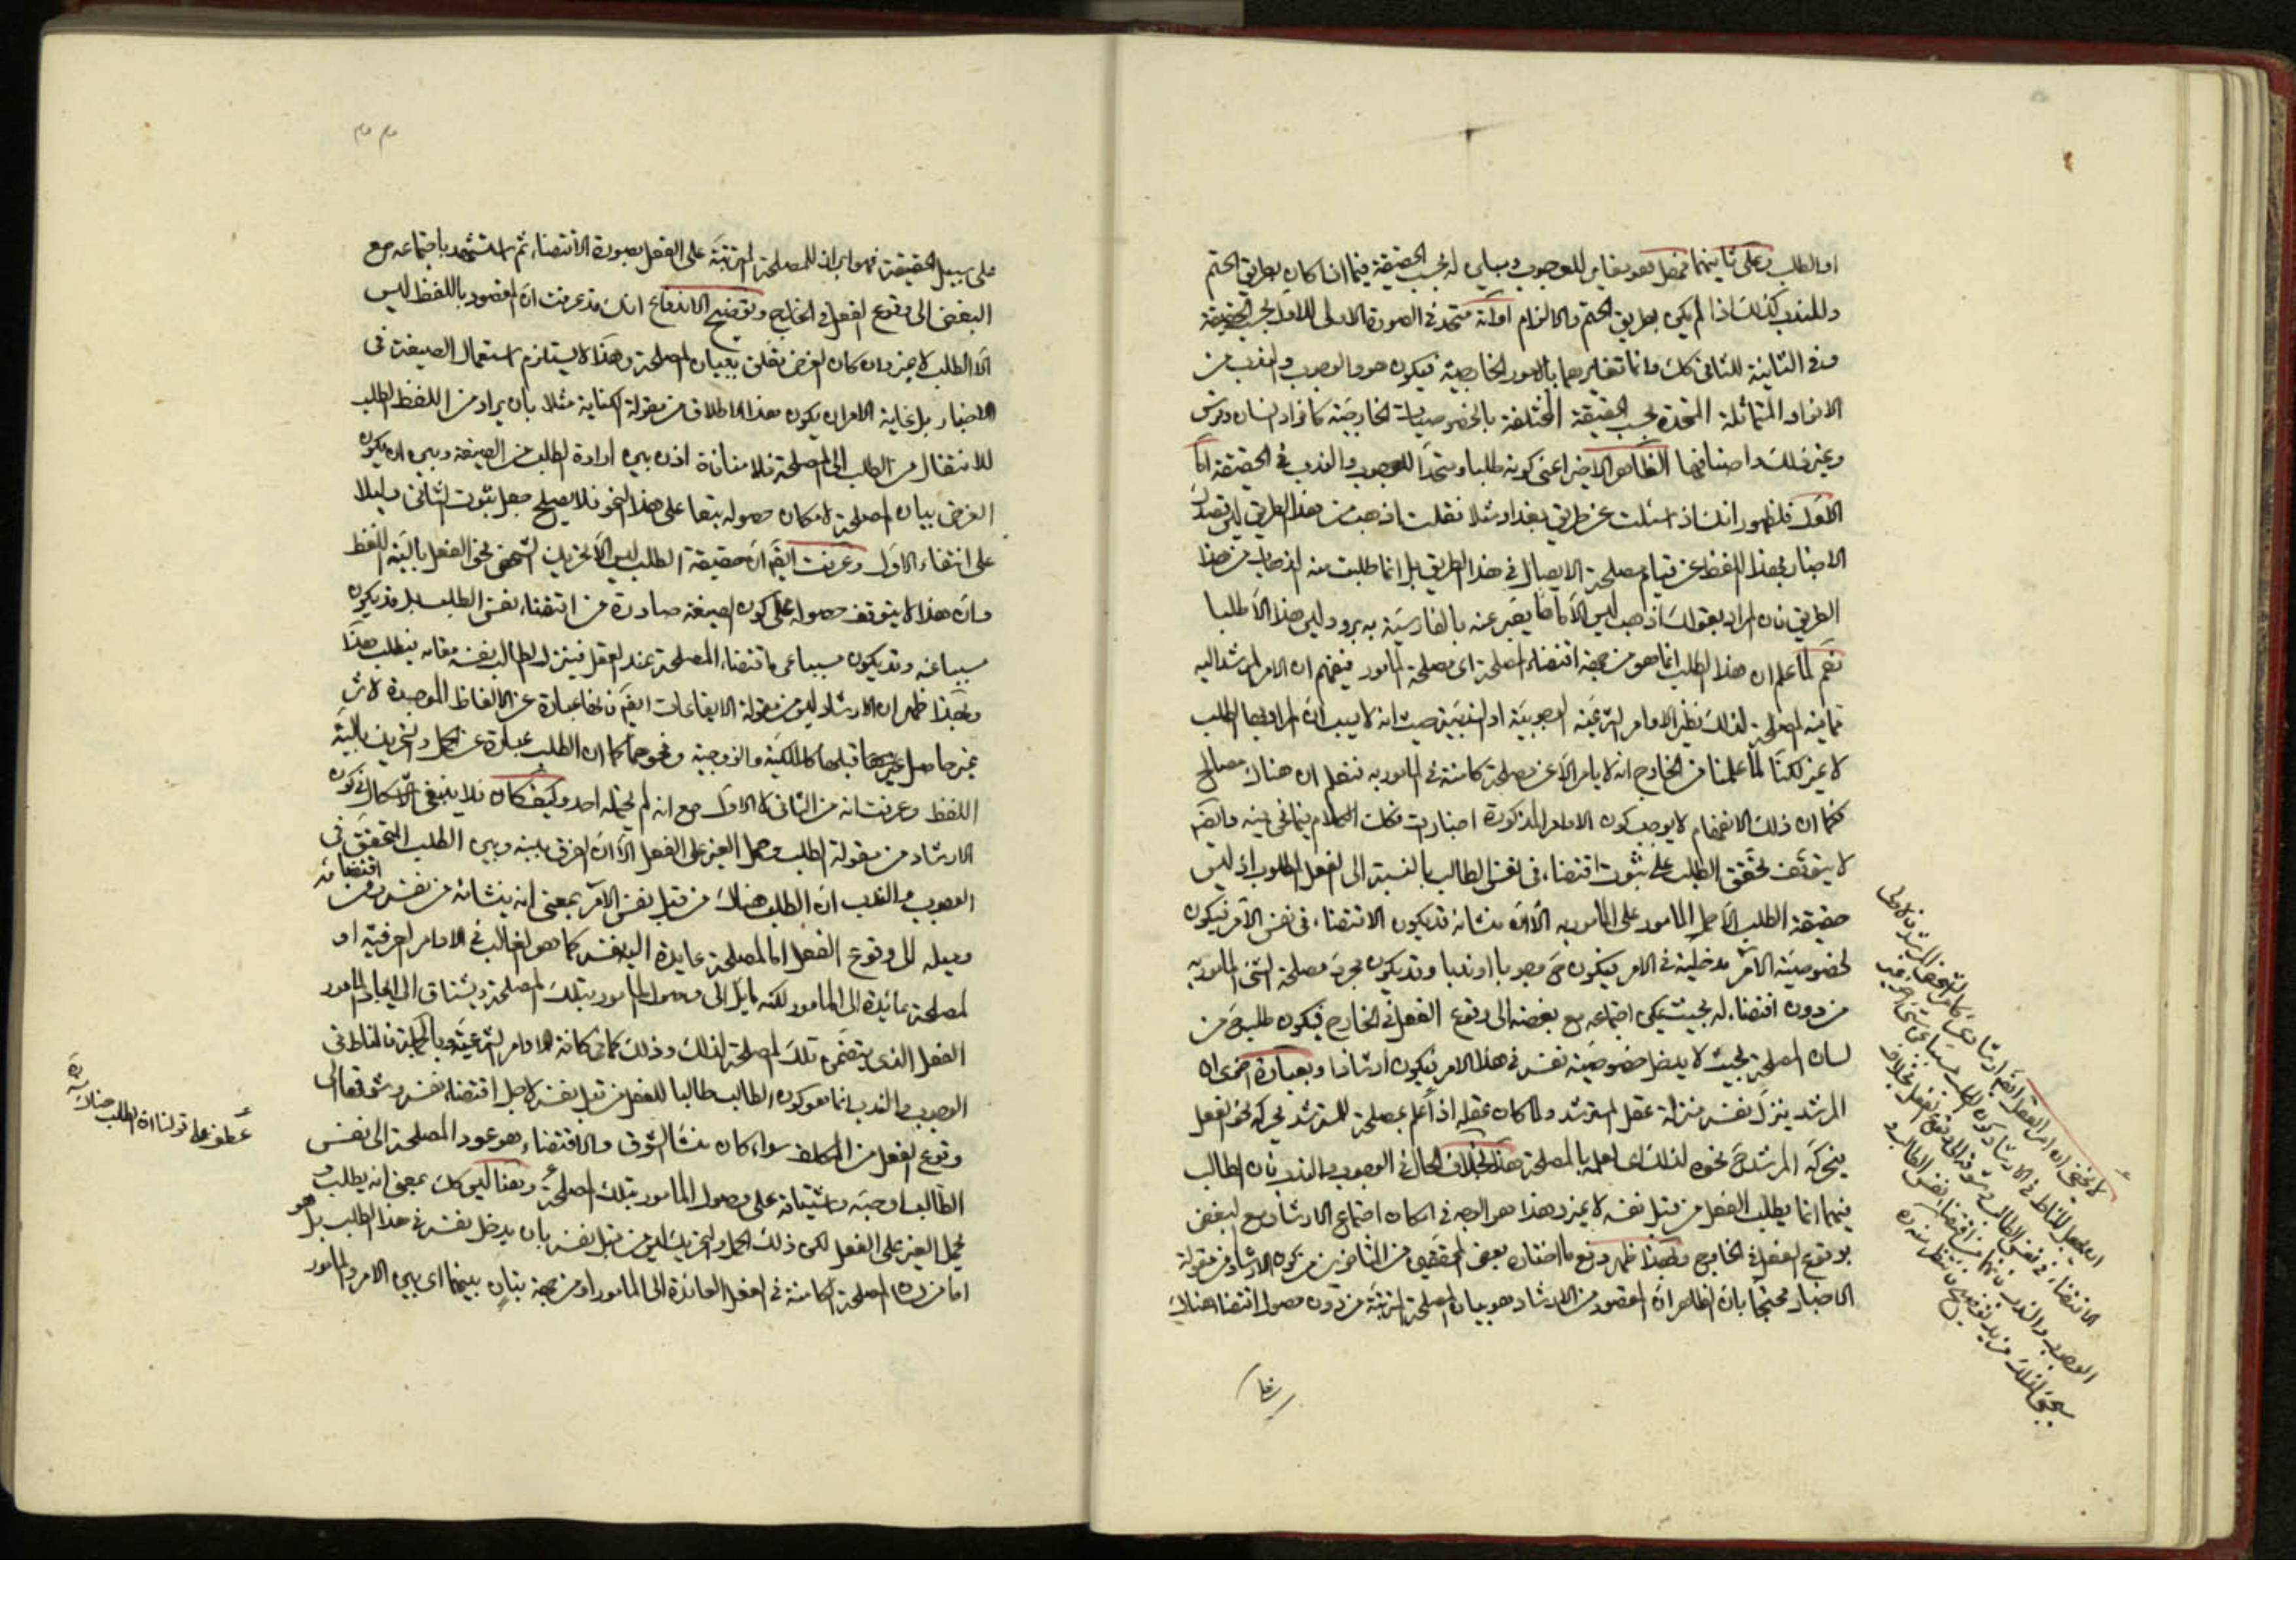 او الطلب وعلى ثانيهما فهل هو مغاير للوجوب ومباين له بحسب الحقيقة فيما اذا كان بطريق الحتم
وللندب كذلك اذا لم يكن بطريق الحتم والالزام او انه متحد في الصورة الاولى للاول بحسب الحقيقة
وفي الثانية للثاني كك وانما تغايرهما بالامور الخارجية فيكون هو والوجوب والندب من
الافراد المتماثلة المتحدة بحسب الحقيقة المختلفة بالخصوصيات الخارجية كافراد انسان وفرس
وغير ذلك واصنافها الظاهر الاخير اعني كونه طلبا ومتحدا للوجوب والندب في الحقيقة اما
الاول فلظهور انك اذا سئلت عن طريق بغداد مثلا فقلت اذهب من هذا الطريق ليس قصدك
الاخبار بهذا اللفظ عن قيام مصلحة الايصال في هذا الطريق بل انما طلبت منه الذهاب من هذا
الطريق فان المراد بقولك اذهب ليس الا ما يعبر عنه بالفارسية به برو وليس هذا الا طلبا
نعم لما علم ان هذا الطلب انما هو من جهة اقتضاء المصلحة اي مصلحة المأمور فيفهم ان الامر المرشد اليه
فيه المصلحة لذلك نظير الاوامر الشرعية الوجوبية او الندبية حيث انه لا ريب ان المراد بها الطلب
لا غير لكنا لما علمنا من الخارج انه لا يامر الا عن مصلحة كامنة في المأمور به فنعلم ان هناك مصالح
فكما ان ذلك الانفهام لا يوجب كون الاوامر المذكورة اخبارات فكك الكلام فيما نحن فيه وايضا
لا يتوقف تحقق الطلب على ثبوت اقتضاء في نفس الطالب بالنسبة الى الفعل المطلوب اذ ليس
حقيقة الطلب الا حمل المأمور على المأمور به الا ان منشأه قد يكون الاقتضاء في نفس الآمر فيكون
لخصوصية الآمر مدخلية في الامر فيكون ح وجوبا او ندبا وقد يكون مجرد مصلحة الشئ المأمور به
من دون اقتضاء له بحيث يمكن اجتماعه مع بغضه الى وقوع الفعل في الخارج فيكون طلبه ح من
لسان المصلحة بحيث لا يدخل خصوصية نفسه في هذا الامر فيكون ارشادا وبعبارة اخرى ان
المرشد ينزل نفسه منزلة عقل المسترشد ولما كان عقله اذا علم بمصلحة للمسترشد يحركه نحو الفعل
فيحركه المرشد ح نحوه لذلك اي لعلمه بالمصلحة هذا بخلاف الحال في الوجوب والندب فان الطالب
فيهما انما يطلب الفعل من قبل نفسه لا غير وهذا هو الوجه في امكان اجتماع الارشاد مع البغض
بوقوع الفعل في الخارج وبهذا ظهر دفع ما اختاره بعض المحققين من المتأخرين من كون الارشاد من مقولة
الاخبار محتجا بان الظاهر ان المقصود من الارشاد هو بيان المصلحة المترتبة من دون حصول اقتضاء هناك
لا يخفى ان امر العقل ايضا ارشادي
ان يجعل المناط في الارشاد كون الطلب مسببا عن
الاقتضاء في نفس الطالب وشوقه الى وقوع الفعل بخلاف
الوجوب والندب فانهما من اقتضاء نفس الطالب و
سيجئ لذلك مزيد توضيح فانتظر منه ره
على سبيل الحقيقة فهو ابراز للمصلحة المترتبة على الفعل بصورة الاقتضاء ثم استشهد باجتماعه مع
البغض الى وقوع الفعل في الخارج وتوضيح الاندفاع انك قد عرفت ان المقصود باللفظ ليس
الا الطلب لا غير وان كان الغرض تعلق ببيان المصلحة وهذا لا يستلزم استعمال الصيغة في
الاخبار بل غاية الامر ان يكون هذا الاطلاق من مقولة الكناية مثلا بان يراد من اللفظ الطلب
للانتقال من الطلب الى المصلحة فلا منافاة اذن بين ارادة الطلب من الصيغة وبين ان يكون
الغرض بيان المصلحة لامكان حصوله تبعا على هذا النحو فلا يصلح جعل ثبوت الثاني دليلا
على انتفاء الاول وعرفت ايضا ان حقيقة الطلب ليس الا تحريك الشخص نحو الفعل بالية اللفظ
وان هذا لا يتوقف حصوله على كون الصيغة صادرة من اقتضاء نفس الطالب بل قد يكون
مسببا عنه وقد يكون مسببا عن اقتضاء المصلحة عند العقل فينزل الطالب نفسه مقامه فيطلب هذا
وبهذا ظهر ان الارشاد ليس من مقولة الايقاعات ايضا فانها عبارة عن الالفاظ الموجدة لاثر
غير حاصل قبلها كالملكية والزوجية ونحوهما كما ان الطلب عبارة عن الحمل والتحريك بالية
اللفظ وعرفت انه من الثاني لا الاول مع انه لم يحتمله احد وكيف كان فلا ينبغي الاشكال في كون
الارشاد من مقولة الطلب وحمل الغير على الفعل الا ان الفرق بينه وبين الطلب المتحقق في
الوجوب والندب ان الطلب هناك من قبل نفس الآمر بمعنى انه ينشأ من نفسه ومن اقتضائه
وميله الى وقوع الفعل اما لمصلحة عايدة اليه نفسه كما هو الغالب في الاوامر العرفية او
لمصلحة عائدة الى المأمور لكنه مايل الى وصول المأمور بتلك المصلحة ويشتاق الى ايجاد المأمور
الفعل الذي يتضمن تلك المصلحة لذلك وذلك كما في كافة الاوامر الشرعية وبالجملة فالمناط في
الوجوب والندب انما هو كون الطالب طالبا للفعل من قبل نفسه لاجل اقتضاء نفسه وشوقها الى
وقوع الفعل من المكلف سواء كان منشأ الشوق والاقتضاء هو عود المصلحة الى نفس
الطالب او حبه واشتياقه على وصول المأمور بتلك المصلحة وهنا ليس كك بمعنى انه يطلب و
يحمل الغير على الفعل لكن ذلك الحمل والتحريك ليس من قبل نفسه بان يدخل نفسه في هذا الطلب بل هو
اما من لسان المصلحة الكامنة في الفعل العائدة الى المأمور او من جهة تبان بينهما اي بين الآمر والمأمور
عطف على قولنا ان الطلب هناك منه ره